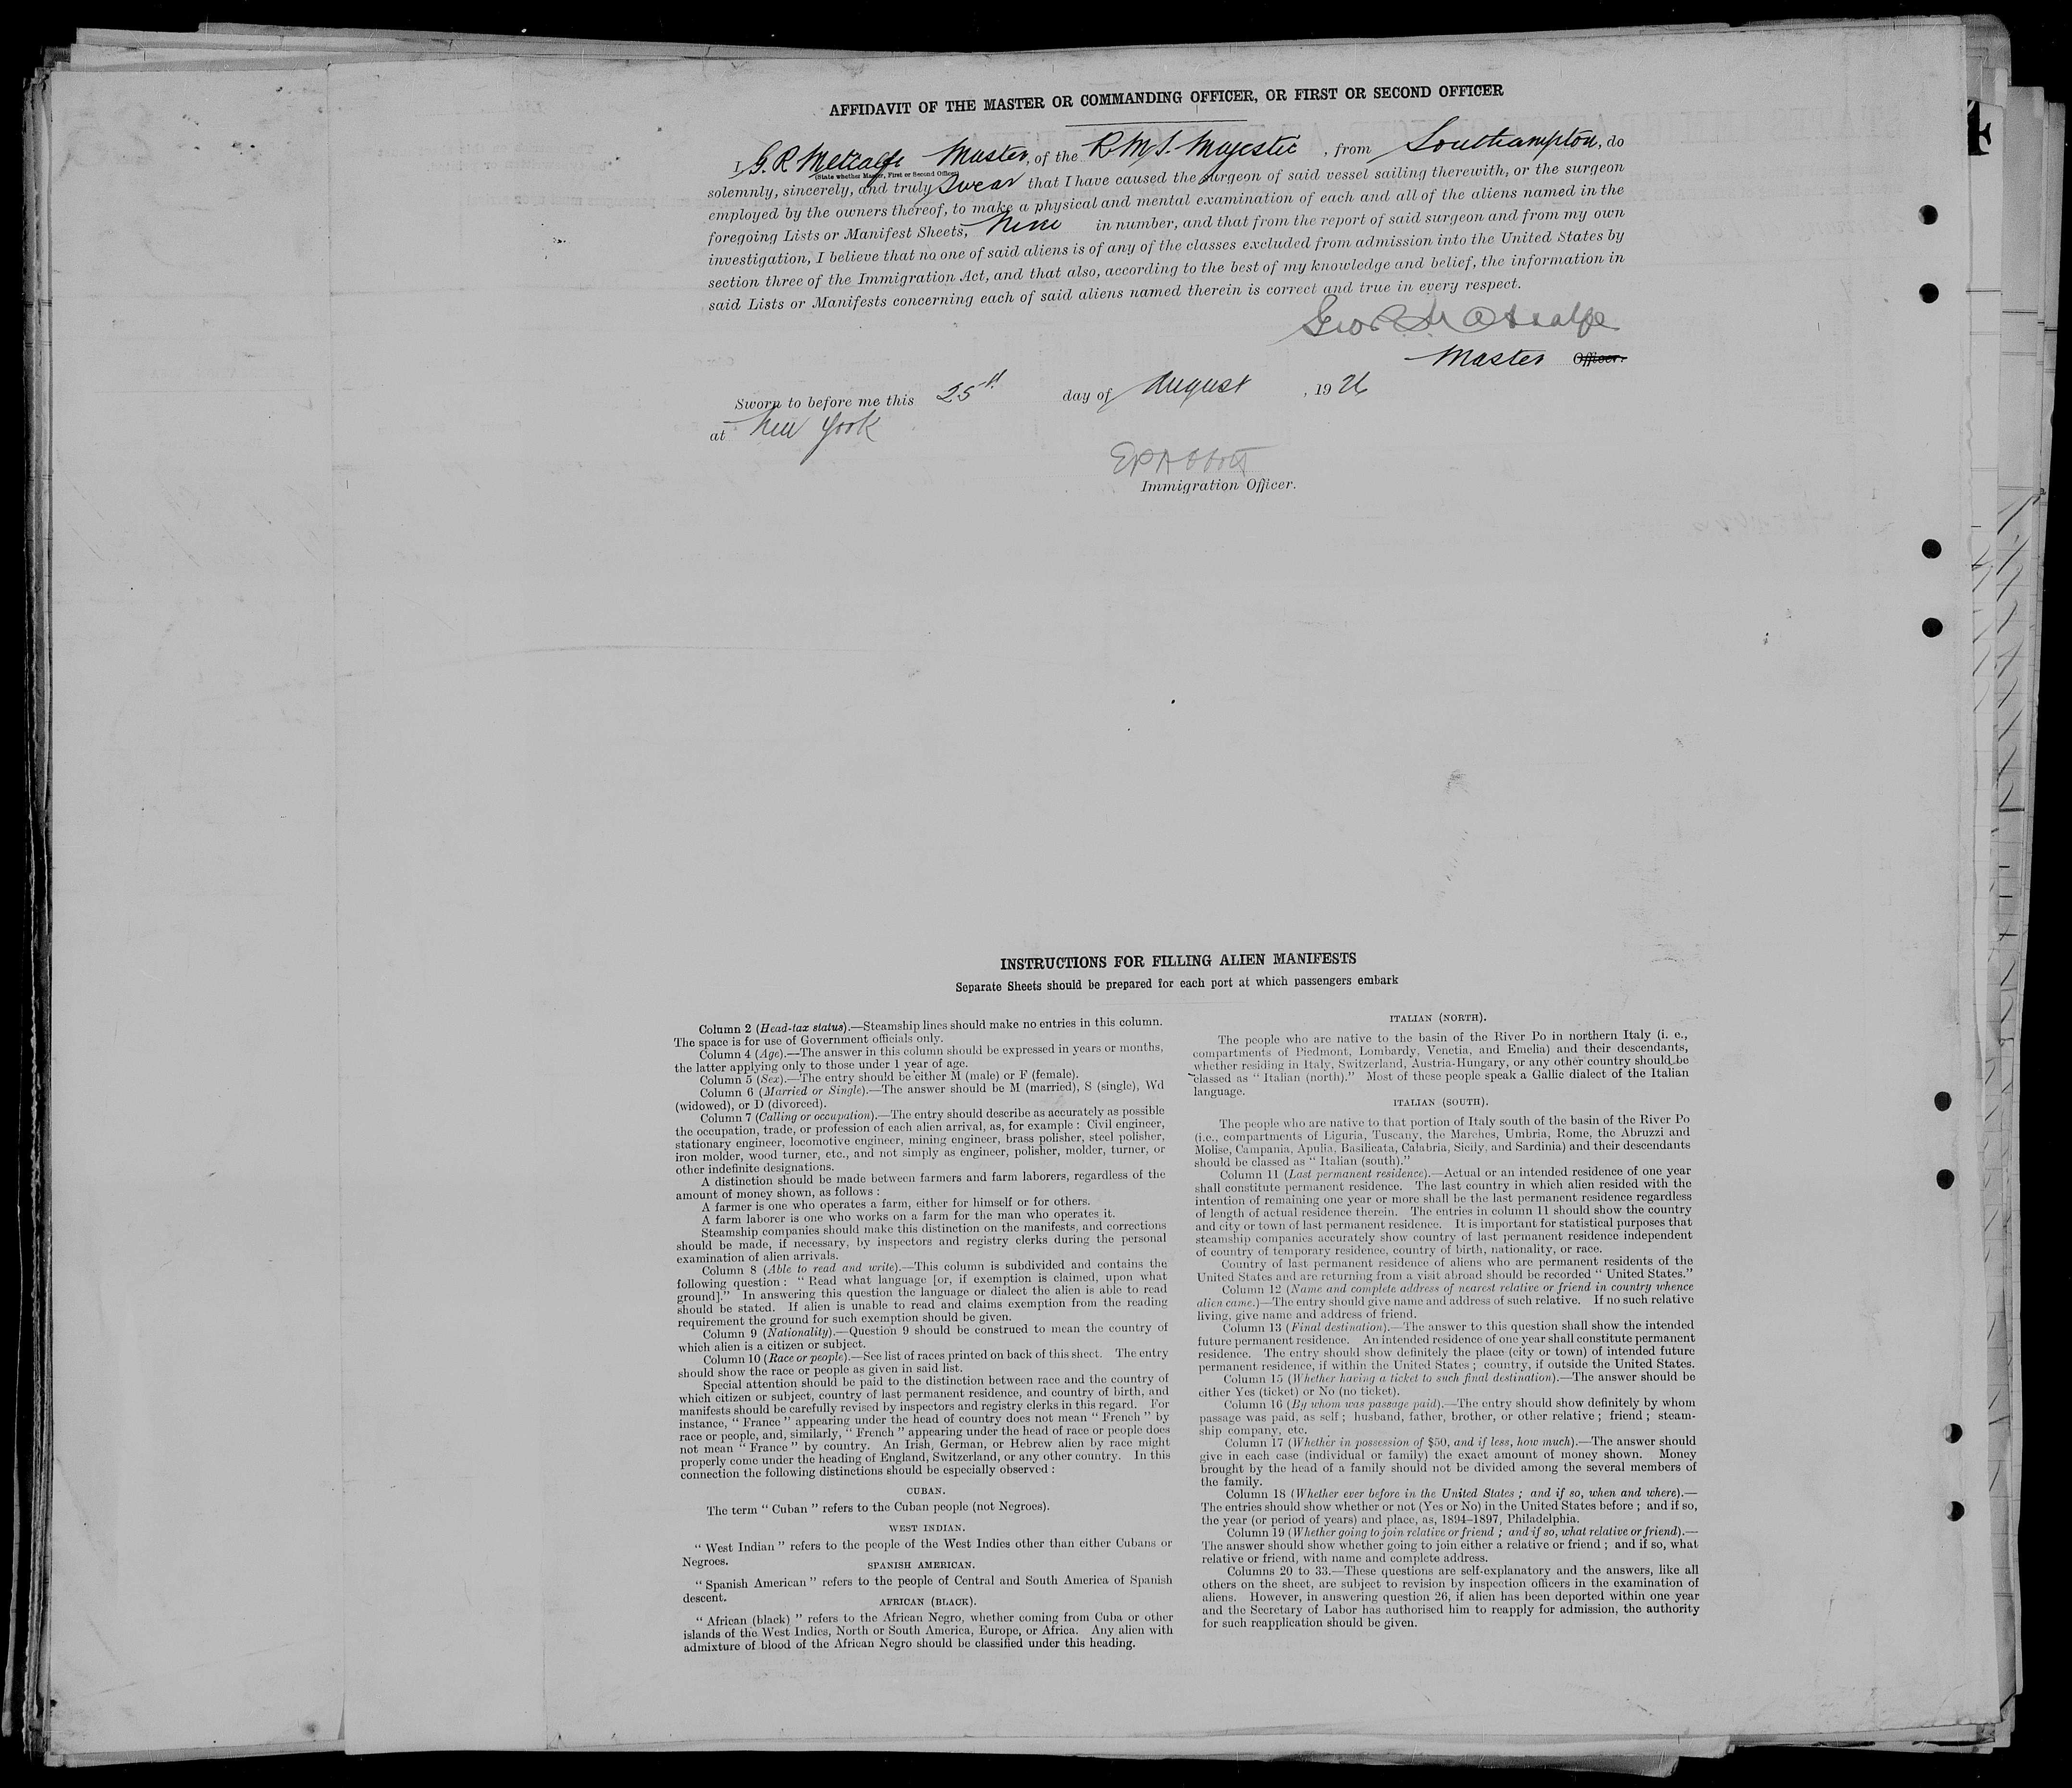 AFFIDAVIT OF THE MASTER OR COMMANDING OFFICER, OR FIRST OR SECOND OFFICER
I, G. R Metcalfe Master, of the R.M.S. Majestic, from Southampton, do
(State whether Master, First or Second Officer)
solemnly, sincerely, and truly swear that I have caused the surgeon of said vessel sailing therewith, or the surgeon
employed by the owners thereof, to make a physical and mental examination of each and all of the aliens named in the
foregoing Lists or Manifest Sheets, nine in number, and that from the report of said surgeon and from my own
investigation, I believe that no one of said aliens is of any of the classes excluded from admission into the United States by
section three of the Immigration Act, and that also, according to the best of my knowledge and belief, the information in
said Lists or Manifests concerning each of said aliens named therein is correct and true in every respect.
Geo R Metcalfe
Master Officer.
Sworn to before me this 25th day of August, 1926
at New York
EPAbbott
Immigration Officer.
INSTRUCTIONS FOR FILLING ALIEN MANIFESTS
Separate Sheets should be prepared for each port at which passengers embark
Column 2 (Head-tax status).—Steamship lines should make no entries in this column.
The space is for use of Government officials only.
Column 4 (Age).—The answer in this column should be expressed in years or months,
the latter applying only to those under 1 year of age.
Column 5 (Sex).—The entry should be either M (male) or F (female).
Column 6 (Married or Single).—The answer should be M (married), S (single), Wd
(widowed), or D (divorced).
Column 7 (Calling or occupation).—The entry should describe as accurately as possible
the occupation, trade, or profession of each alien arrival, as, for example : Civil engineer,
stationary engineer, locomotive engineer, mining engineer, brass polisher, steel polisher,
iron molder, wood turner, etc., and not simply as engineer, polisher, molder, turner, or
other indefinite designations.
A distinction should be made between farmers and farm laborers, regardless of the
amount of money shown, as follows :
A farmer is one who operates a farm, either for himself or for others.
A farm laborer is one who works on a farm for the man who operates it.
Steamship companies should make this distinction on the manifests, and corrections
should be made, if necessary, by inspectors and registry clerks during the personal
examination of alien arrivals.
Column 8 (Able to read and write).—This column is subdivided and contains the
following question : “ Read what language [or, if exemption is claimed, upon what
ground].” In answering this question the language or dialect the alien is able to read
should be stated. If alien is unable to read and claims exemption from the reading
requirement the ground for such exemption should be given.
Column 9 (Nationality).—Question 9 should be construed to mean the country of
which alien is a citizen or subject.
Column 10 (Race or people).—See list of races printed on back of this sheet. The entry
should show the race or people as given in said list.
Special attention should be paid to the distinction between race and the country of
which citizen or subject, country of last permanent residence, and country of birth, and
manifests should be carefully revised by inspectors and registry clerks in this regard. For
instance, “ France ” appearing under the head of country does not mean “ French ” by
race or people, and, similarly, “ French ” appearing under the head of race or people does
not mean “ France ” by country. An Irish, German, or Hebrew alien by race might
properly come under the heading of England, Switzerland, or any other country. In this
connection the following distinctions should be especially observed :
CUBAN.
The term “ Cuban ” refers to the Cuban people (not Negroes).
WEST INDIAN.
“ West Indian ” refers to the people of the West Indies other than either Cubans or
Negroes.
SPANISH AMERICAN.
“ Spanish American ” refers to the people of Central and South America of Spanish
descent.
AFRICAN (BLACK).
“ African (black) ” refers to the African Negro, whether coming from Cuba or other
islands of the West Indies, North or South America, Europe, or Africa. Any alien with
admixture of blood of the African Negro should be classified under this heading.
ITALIAN (NORTH).
The people who are native to the basin of the River Po in northern Italy (i. e.,
compartments of Piedmont, Lombardy, Venetia, and Emelia) and their descendants,
whether residing in Italy, Switzerland, Austria-Hungary, or any other country should be
classed as “ Italian (north).” Most of these people speak a Gallic dialect of the Italian
language.
ITALIAN (SOUTH).
The people who are native to that portion of Italy south of the basin of the River Po
(i.e., compartments of Liguria, Tuscany, the Marches, Umbria, Rome, the Abruzzi and
Molise, Campania, Apulia, Basilicata, Calabria, Sicily, and Sardinia) and their descendants
should be classed as “ Italian (south).”
Column 11 (Last permanent residence).—Actual or an intended residence of one year
shall constitute permanent residence. The last country in which alien resided with the
intention of remaining one year or more shall be the last permanent residence regardless
of length of actual residence therein. The entries in column 11 should show the country
and city or town of last permanent residence. It is important for statistical purposes that
steamship companies accurately show country of last permanent residence independent
of country of temporary residence, country of birth, nationality, or race.
Country of last permanent residence of aliens who are permanent residents of the
United States and are returning from a visit abroad should be recorded “ United States.”
Column 12 (Name and complete address of nearest relative or friend in country whence
alien came.)—The entry should give name and address of such relative. If no such relative
living, give name and address of friend.
Column 13 (Final destination).—The answer to this question shall show the intended
future permanent residence. An intended residence of one year shall constitute permanent
residence. The entry should show definitely the place (city or town) of intended future
permanent residence, if within the United States ; country, if outside the United States.
Column 15 (Whether having a ticket to such final destination).—The answer should be
either Yes (ticket) or No (no ticket).
Column 16 (By whom was passage paid).—The entry should show definitely by whom
passage was paid, as self ; husband, father, brother, or other relative ; friend ; steam-
ship company, etc.
Column 17 (Whether in possession of $50, and if less, how much).—The answer should
give in each case (individual or family) the exact amount of money shown. Money
brought by the head of a family should not be divided among the several members of
the family.
Column 18 (Whether ever before in the United States ; and if so, when and where).—
The entries should show whether or not (Yes or No) in the United States before ; and if so,
the year (or period of years) and place, as, 1894–1897, Philadelphia.
Column 19 (Whether going to join relative or friend ; and if so, what relative or friend).—
The answer should show whether going to join either a relative or friend ; and if so, what
relative or friend, with name and complete address.
Columns 20 to 33.—These questions are self-explanatory and the answers, like all
others on the sheet, are subject to revision by inspection officers in the examination of
aliens. However, in answering question 26, if alien has been deported within one year
and the Secretary of Labor has authorised him to reapply for admission, the authority
for such reapplication should be given.